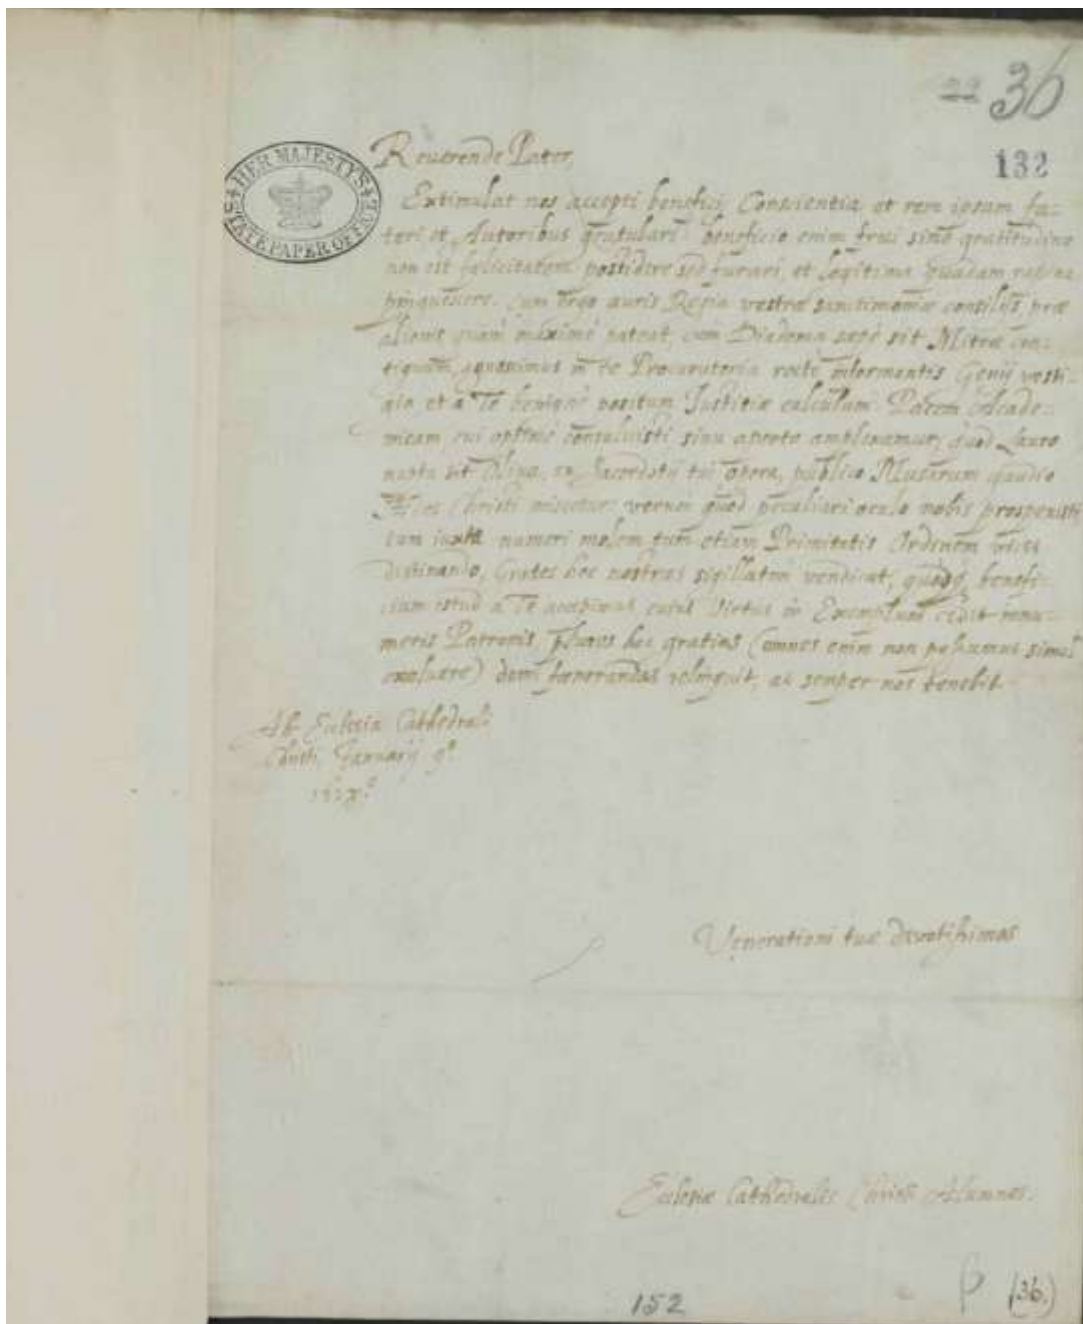 22 36
132
HER MAJESTY'S
STATE PAPER OFFICE
Reverende Pater,
Extimulat nos accepti beneficij Conscientia et rem ipsam fa-
teri et Autoribus gratulari: beneficio enim frui sine gratitudine
non est fælicitatem possidere sed furari, et legitima quadam rapina
pinguescere. Cum ergo auris Regia vestræ sanctimoniæ consilijs præ
alienis quam maximè pateat, cum Diadema sæpè sit Mitræ con-
tiguum, agnoscimus in te Procuratoria rectè informantis Genij vesti-
gia et a Te benignè positum Justitiæ calculum. Pacem Acade-
micam cui optimè consuluisti sinu aperto amplexamur; quod Lauro
nupta sit Oliva, ex Sacerdotij tui opera, publico Musarum gaudio
Ædes Christi miscetur: verum quod peculiari oculo nobis prospexisti
tam iuxta numeri molem tum etiam Primitatis Ordinem vices
distinando, Grates hoc nostras sigillatim vendicat, quod benefi-
cium istud a Te accepimus cuius Virtus in Exemplum cedit innu-
meris Patronis, plures hoc gratias (omnes enim non possumus simul
exoluere) domi fænerandas relinquit, ac semper nos tenebit
Ab Ecclesia Cathedrali
Christi, Januarij 9º
Venerationi tuæ devotissimos
Ecclesiæ Cathedralis Christi Alumnos.
152
(36.)